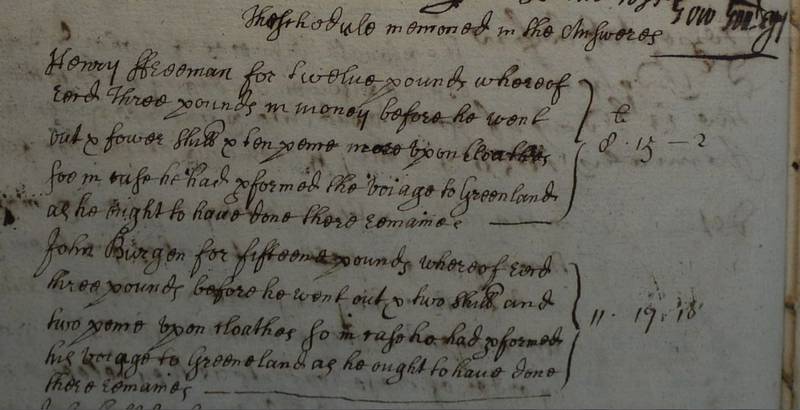 The schedule menc̃oned in the Answere
Henry Freeman for twelve pounds whereof
recd three pounds in money before he went
out & fower shills & ten pence more vpon cloathes
soe in case he had pformed the voiage to Greenland
as he ought to have done there remaines
li
8 · 15 – 2
John Burgen for fifteene pounds whereof recd
three pounds before he went out & two shills and
two pence vpon cloathes so in case he had pformed
his voiage to Greeneland as he ought to have done
there remaines
11 · 19 · 18